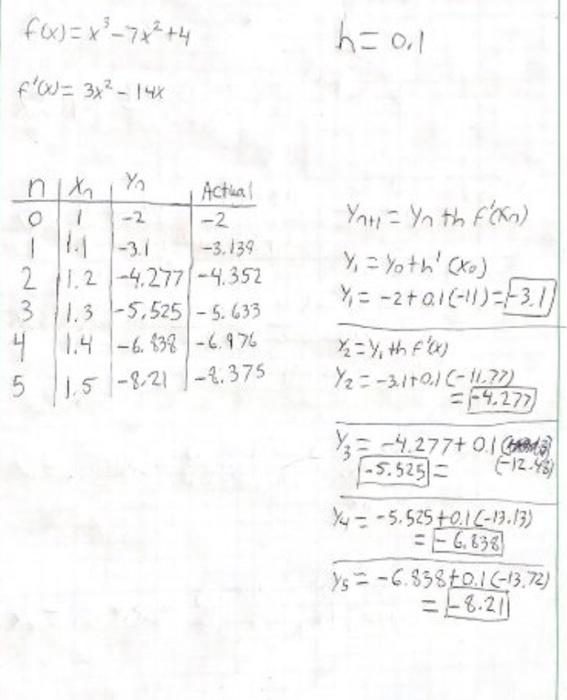 f(x) = x³ - 7x² + 4
h = 0.1
f'(x) = 3x² - 14x
n Xn Yn Actual
0 1 -2 -2
1 1.1 -3.1 -3.139
2 1.2 -4.277 -4.352
3 1.3 -5.525 -5.633
4 1.4 -6.838 -6.976
5 1.5 -8.21 -8.375
Yn+1 = Yn + h f'(Xn)
Y1 = Y0 + h' (X0)
Y1 = -2 + 0.1(-11) = -3.1
Y2 = Y1 + h f'(x)
Y2 = -3.1 + 0.1(-11.77)
= -4.277
Y3 = -4.277 + 0.1
(-12.48)
-5.525 =
Y4 = -5.525 + 0.1(-13.13)
= -6.838
Y5 = -6.838 + 0.1(-13.72)
= -8.21